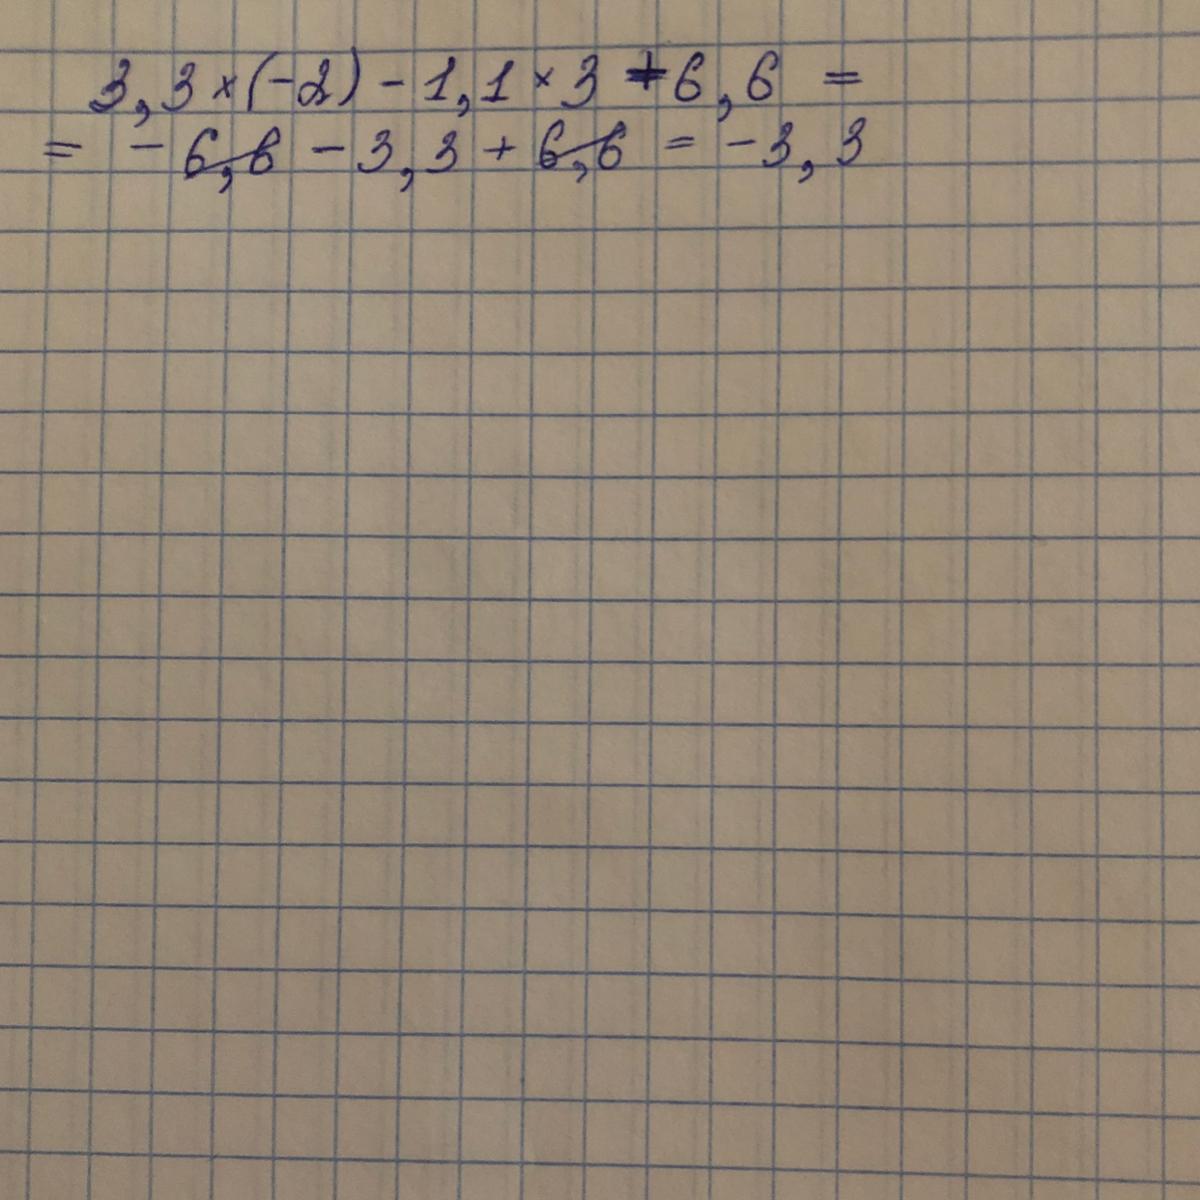 3,3 × (-2) - 1,1 × 3 + 6,6 =
= - 6,6 - 3,3 + 6,6 = -3,3